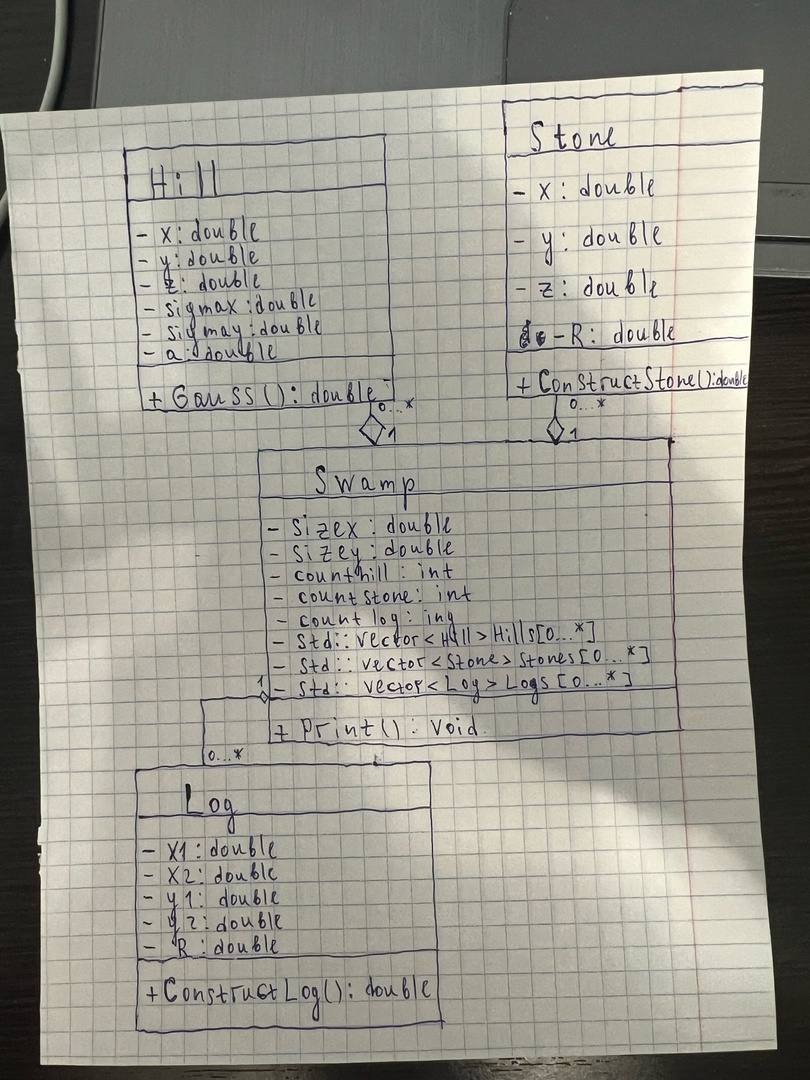 Hill
- x: double
- y: double
- z: double
- sigmax: double
- sigmay: double
- a: double
+ Gauss(): double
0...*
1
Stone
- x: double
- y: double
- z: double
- R: double
+ ConstructStone(): double
0...*
1
Swamp
- sizex: double
- sizey: double
- counthill: int
- countstone: int
- countlog: ing
- std:: vector<Hill> Hills[0...*]
- std:: vector<Stone> Stones[0...*]
- std:: vector<Log> Logs[0...*]
+ Print(): void
1
0...*
Log
- X1: double
- X2: double
- y1: double
- y2: double
- R: double
+ ConstructLog(): double